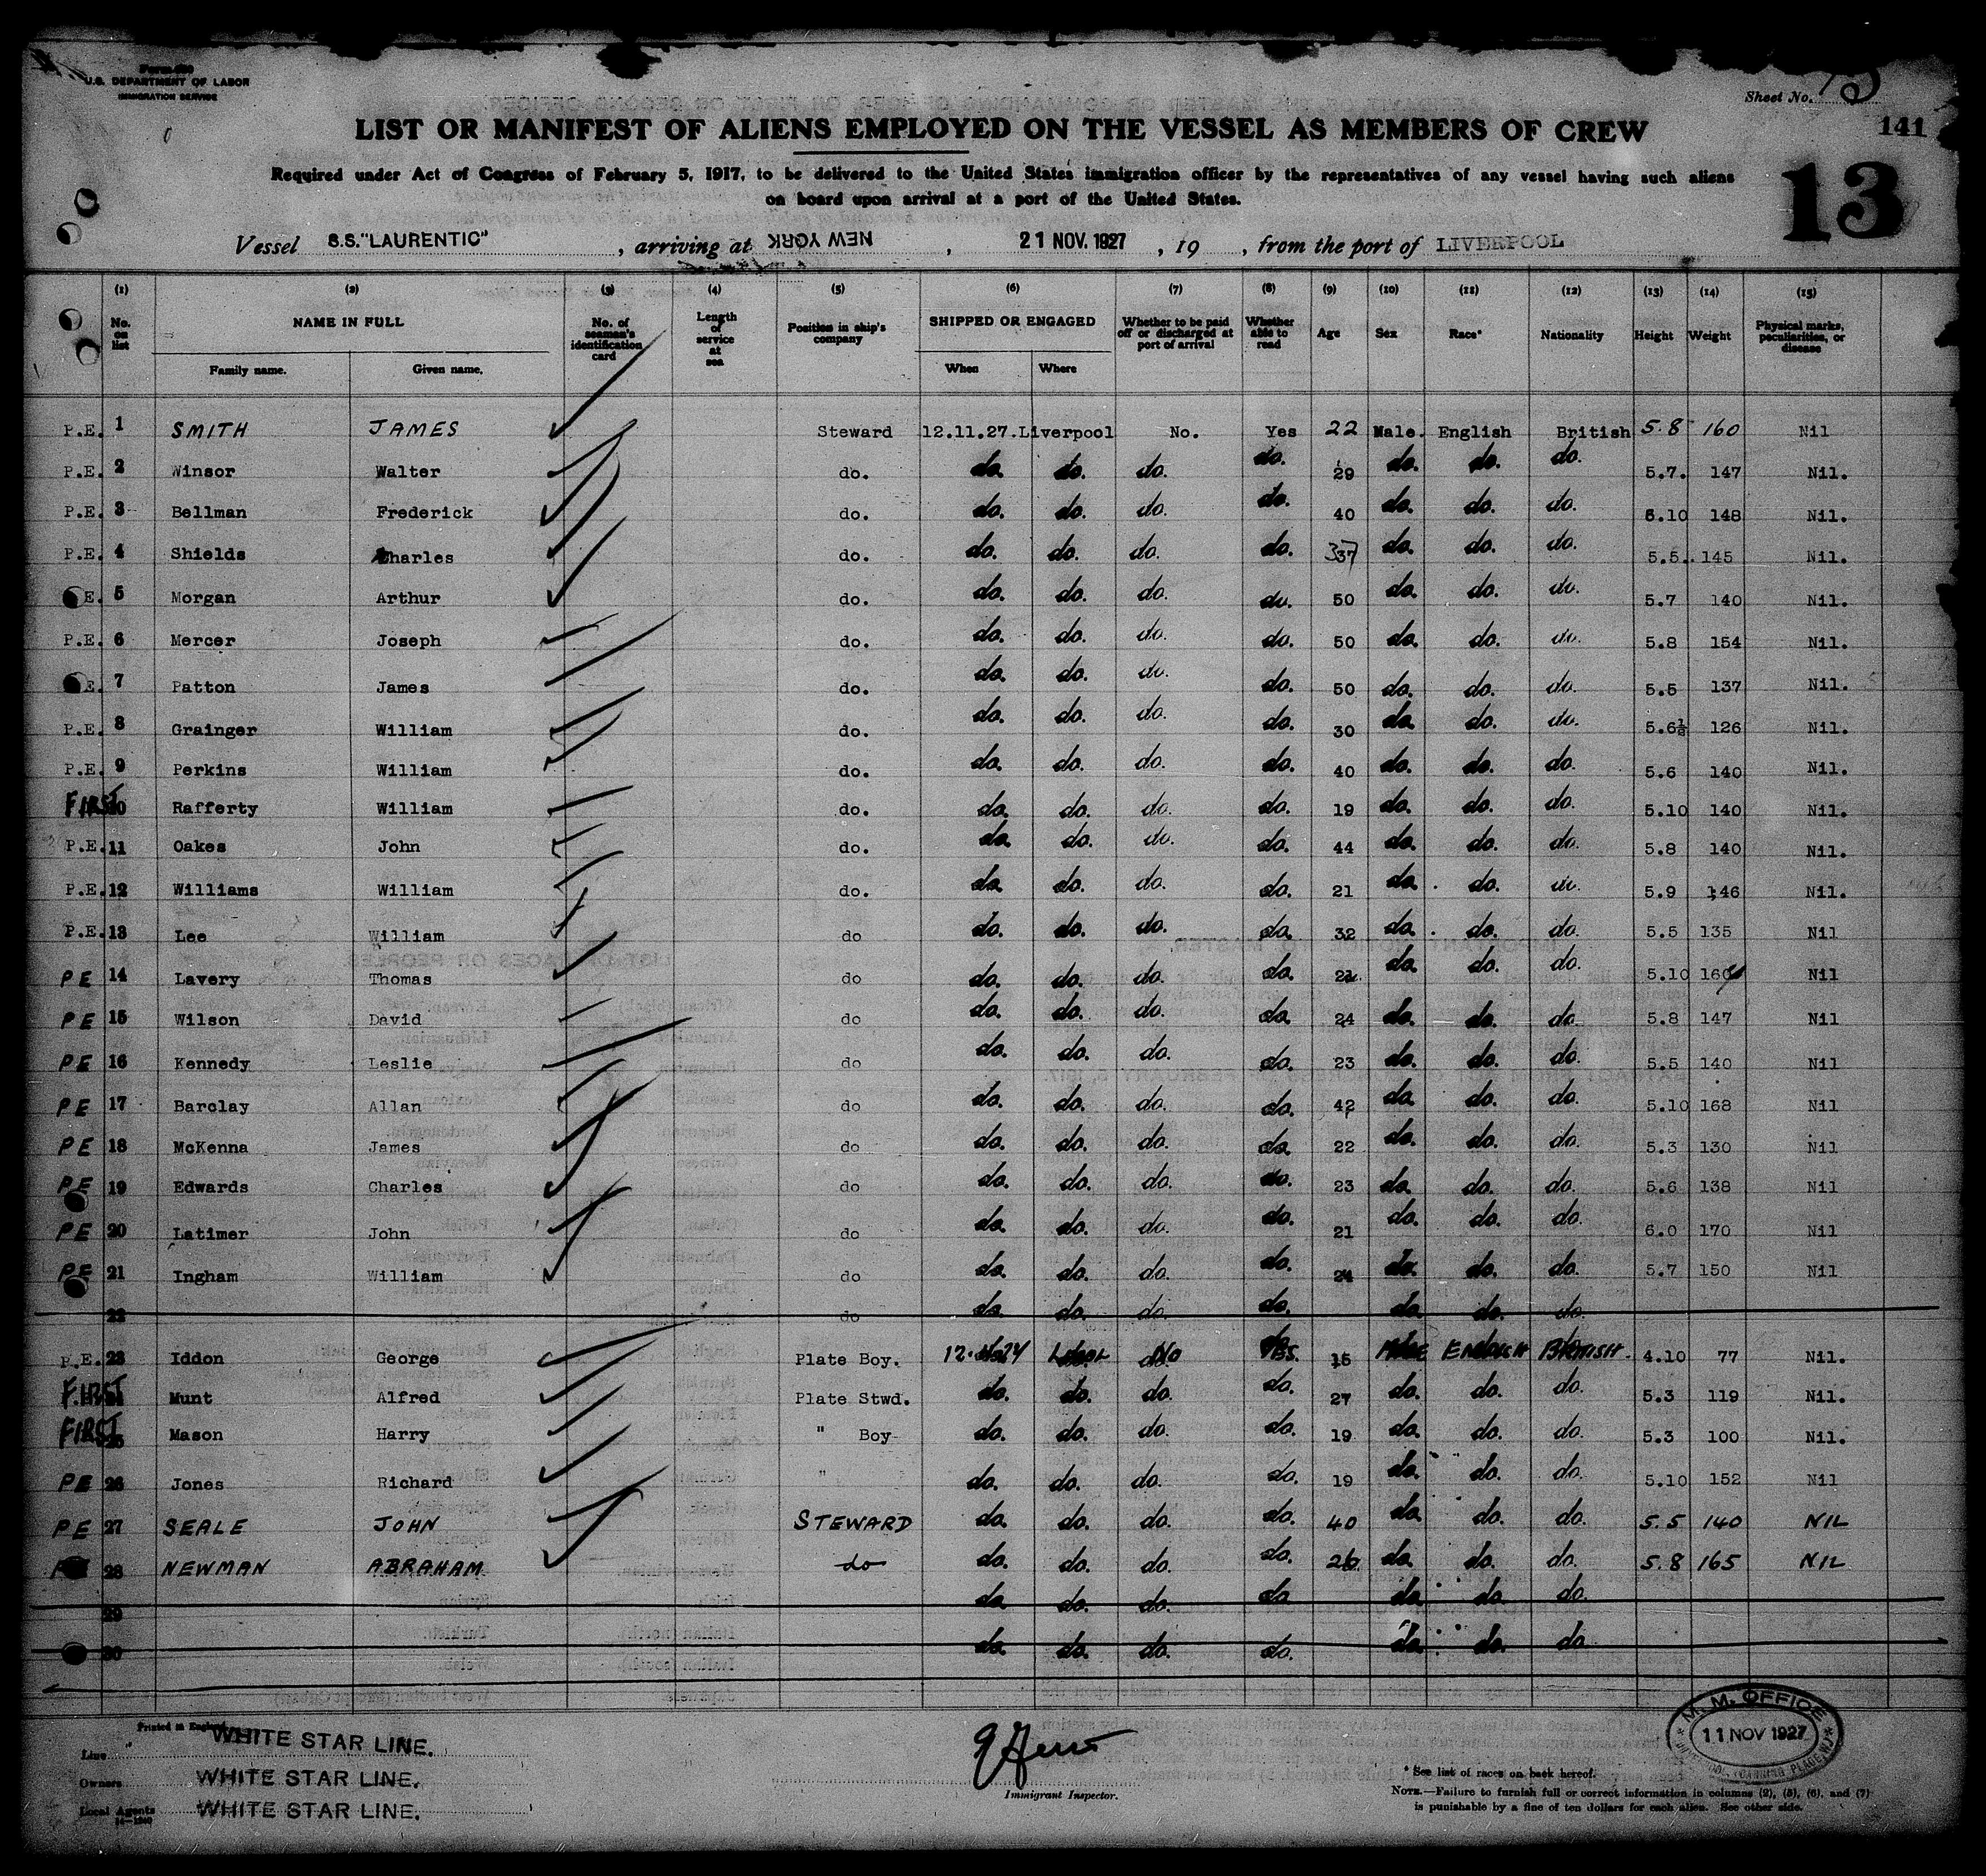 U.S. DEPARTMENT OF LABOR
IMMIGRATION SERVICE
Sheet No. 13
LIST OR MANIFEST OF ALIENS EMPLOYED ON THE VESSEL AS MEMBERS OF CREW
141
13
Required under Act of Congress of February 5, 1917, to be delivered to the United States immigration officer by the representatives of any vessel having such aliens
on board upon arrival at a port of the United States.
Vessel S.S."LAURENTIC", arriving at NEW YORK, 21 NOV. 1927, 19 , from the port of LIVERPOOL
(1) (2) (3) (4) (5) (6) (7) (8) (9) (10) (11) (12) (13) (14) (15)
No. on list NAME IN FULL No. of seaman's identification card Length of service at sea Position in ship's company SHIPPED OR ENGAGED Whether to be paid off or discharged at port of arrival Whether able to read Age Sex Race* Nationality Height Weight Physical marks, peculiarities, or disease
Family name. Given name. When Where
P.E. 1 SMITH JAMES Steward 12.11.27. Liverpool No. Yes 22 Male. English British 5.8 160 Nil
P.E. 2 Winsor Walter do. do. do. do. do. 29 do. do. do. 5.7. 147 Nil.
P.E. 3 Bellman Frederick do. do. do. do. do. 40 do. do. do. 5.10 148 Nil.
P.E. 4 Shields Charles do. do. do. do. do. 37 do. do. do. 5.5. 145 Nil.
P.E. 5 Morgan Arthur do. do. do. do. do. 50 do. do. do. 5.7 140 Nil.
P.E. 6 Mercer Joseph do. do. do. do. do. 50 do. do. do. 5.8 154 Nil.
P.E. 7 Patton James do. do. do. do. do. 50 do. do. do. 5.5 137 Nil.
P.E. 8 Grainger William do. do. do. do. do. 30 do. do. do. 5.6½ 126 Nil.
P.E. 9 Perkins William do. do. do. do. do. 40 do. do. do. 5.6 140 Nil.
FIRST 10 Rafferty William do. do. do. do. do. 19 do. do. do. 5.10 140 Nil.
P.E. 11 Oakes John do. do. do. do. do. 44 do. do. do. 5.8 140 Nil.
P.E. 12 Williams William do. do. do. do. do. 21 do. do. do. 5.9 146 Nil.
P.E. 13 Lee William do do. do. do. do. 32 do. do. do. 5.5 135 Nil
PE 14 Lavery Thomas do do. do. do. do. 21 do. do. do. 5.10 160 Nil
PE 15 Wilson David do do. do. do. do. 24 do. do. do. 5.8 147 Nil
PE 16 Kennedy Leslie do do. do. do. do. 23 do. do. do. 5.5 140 Nil
PE 17 Barclay Allan do do. do. do. do. 42 do. do. do. 5.10 168 Nil
PE 18 McKenna James do do. do. do. do. 22 do. do. do. 5.3 130 Nil
PE 19 Edwards Charles do do. do. do. do. 23 do. do. do. 5.6 138 Nil
PE 20 Latimer John do do. do. do. do. 21 do. do. do. 6.0 170 Nil
PE 21 Ingham William do do. do. do. do. 24 do. do. do. 5.7 150 Nil
22 do do. do. do. do. do. do. do.
P.E. 23 Iddon George Plate Boy. No YES. 15 MALE ENGLISH BRITISH. 4.10 77 Nil.
FIRST Munt Alfred Plate Stwd. do. do. do. do. 27 do. do. do. 5.3 119 Nil.
FIRST 25 Mason Harry " Boy do. do. do. do. 19 do. do. do. 5.3 100 Nil.
PE 26 Jones Richard " do. do. do. do. 19 do. do. do. 5.10 152 Nil
PE 27 SEALE JOHN STEWARD do. do. do. do. 40 do. do. do. 5.5 140 NIL
28 NEWMAN ABRAHAM do do. do. do. do. 26 do. do. do. 5.8 165 NIL
29 do. do. do. do do. do. do.
30 do. do. do. do. do. do. do
Printed in England
Line WHITE STAR LINE.
Owners WHITE STAR LINE.
Local Agents WHITE STAR LINE.
Immigrant Inspector.
M. M. OFFICE
11 NOV 1927
* See list of races on back hereof.
NOTE.—Failure to furnish full or correct information in columns (2), (5), (6), and (7)
is punishable by a fine of ten dollars for each alien. See other side.